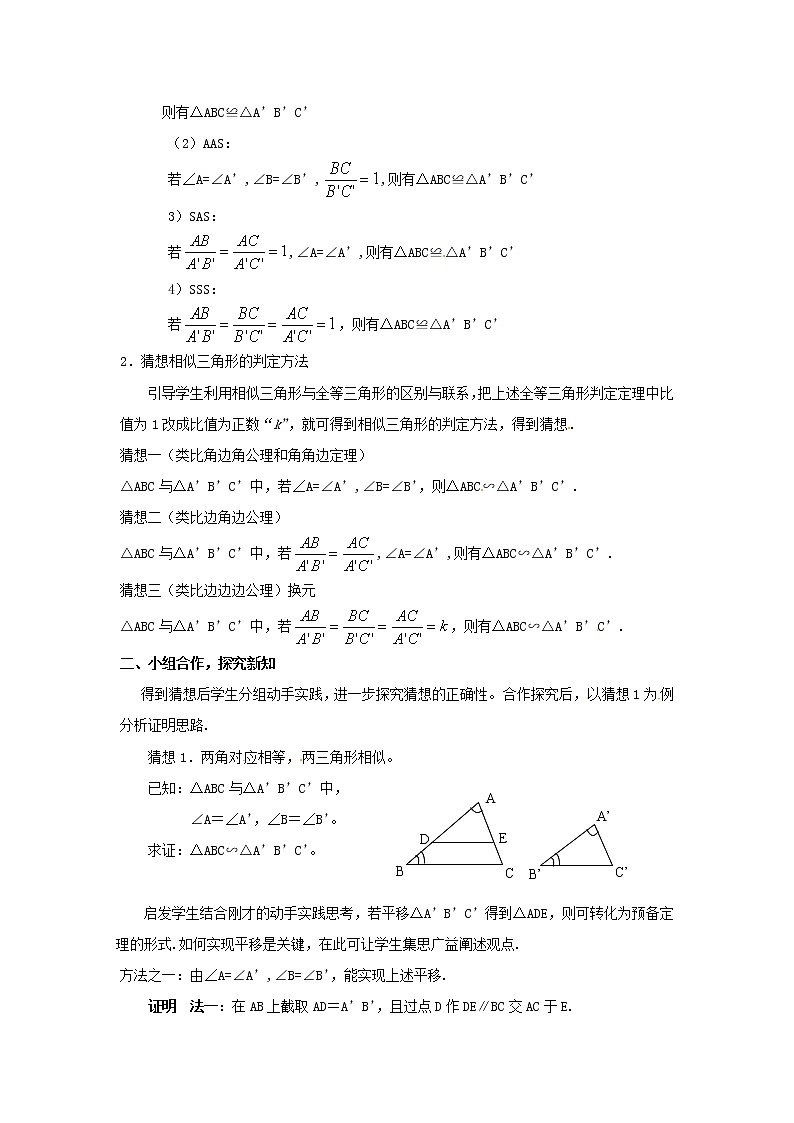 则有△ABC≌△A’B’C’
（2）AAS:
若∠A=∠A’,∠B=∠B’, BC/B'C' = 1,则有△ABC≌△A’B’C’
3）SAS:
若 AB/A'B' = AC/A'C' = 1, ∠A=∠A’,则有△ABC≌△A’B’C’
4）SSS:
若 AB/A'B' = BC/B'C' = AC/A'C' = 1，则有△ABC≌△A’B’C’
2.猜想相似三角形的判定方法
引导学生利用相似三角形与全等三角形的区别与联系,把上述全等三角形判定定理中比
值为1改成比值为正数“k”，就可得到相似三角形的判定方法，得到猜想.
猜想一（类比角边角公理和角角边定理）
△ABC与△A’B’C’中，若∠A=∠A’,∠B=∠B’，则△ABC∽△A’B’C’.
猜想二（类比边角边公理）
△ABC与△A’B’C’中，若 AB/A'B' = AC/A'C', ∠A=∠A’,则有△ABC∽△A’B’C’.
猜想三（类比边边边公理）换元
△ABC与△A’B’C’中，若 AB/A'B' = BC/B'C' = AC/A'C' = k，则有△ABC∽△A’B’C’.
二、小组合作，探究新知
得到猜想后学生分组动手实践，进一步探究猜想的正确性。合作探究后，以猜想1为例
分析证明思路.
猜想1．两角对应相等，两三角形相似。
已知：△ABC与△A’B’C’中，
∠A＝∠A’，∠B＝∠B’。
求证：△ABC∽△A’B’C’。
A
D
E
B
C
A'
B'
C'
启发学生结合刚才的动手实践思考，若平移△A’B’C’得到△ADE，则可转化为预备定
理的形式.如何实现平移是关键，在此可让学生集思广益阐述观点.
方法之一：由∠A=∠A’,∠B=∠B’，能实现上述平移.
证明 法一：在AB上截取AD＝A’B’，且过点D作DE∥BC交AC于E.